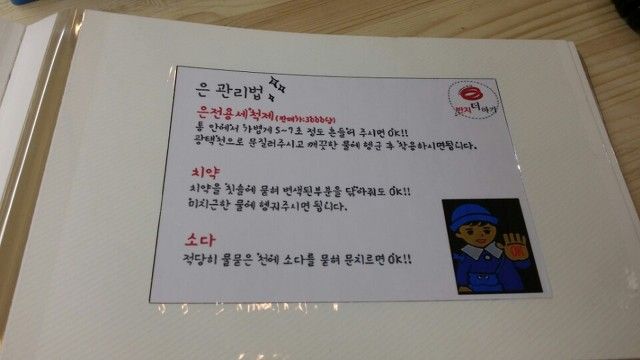 은 관리법
반지더하기
은전용세척제(판매가:3000원)
통 안에서 가볍게 5~7초 정도 흔들어 주시면 OK!!
광택천으로 문질러주시고 깨끗한 물에 헹군 후 착용하시면됩니다.
치약
치약을 칫솔에 묻혀 변색된부분을 닦아줘도 OK!!
미지근한 물에 헹궈주시면 됩니다.
소다
적당히 물묻은 천에 소다를 묻혀 문지르면 OK!!
OK